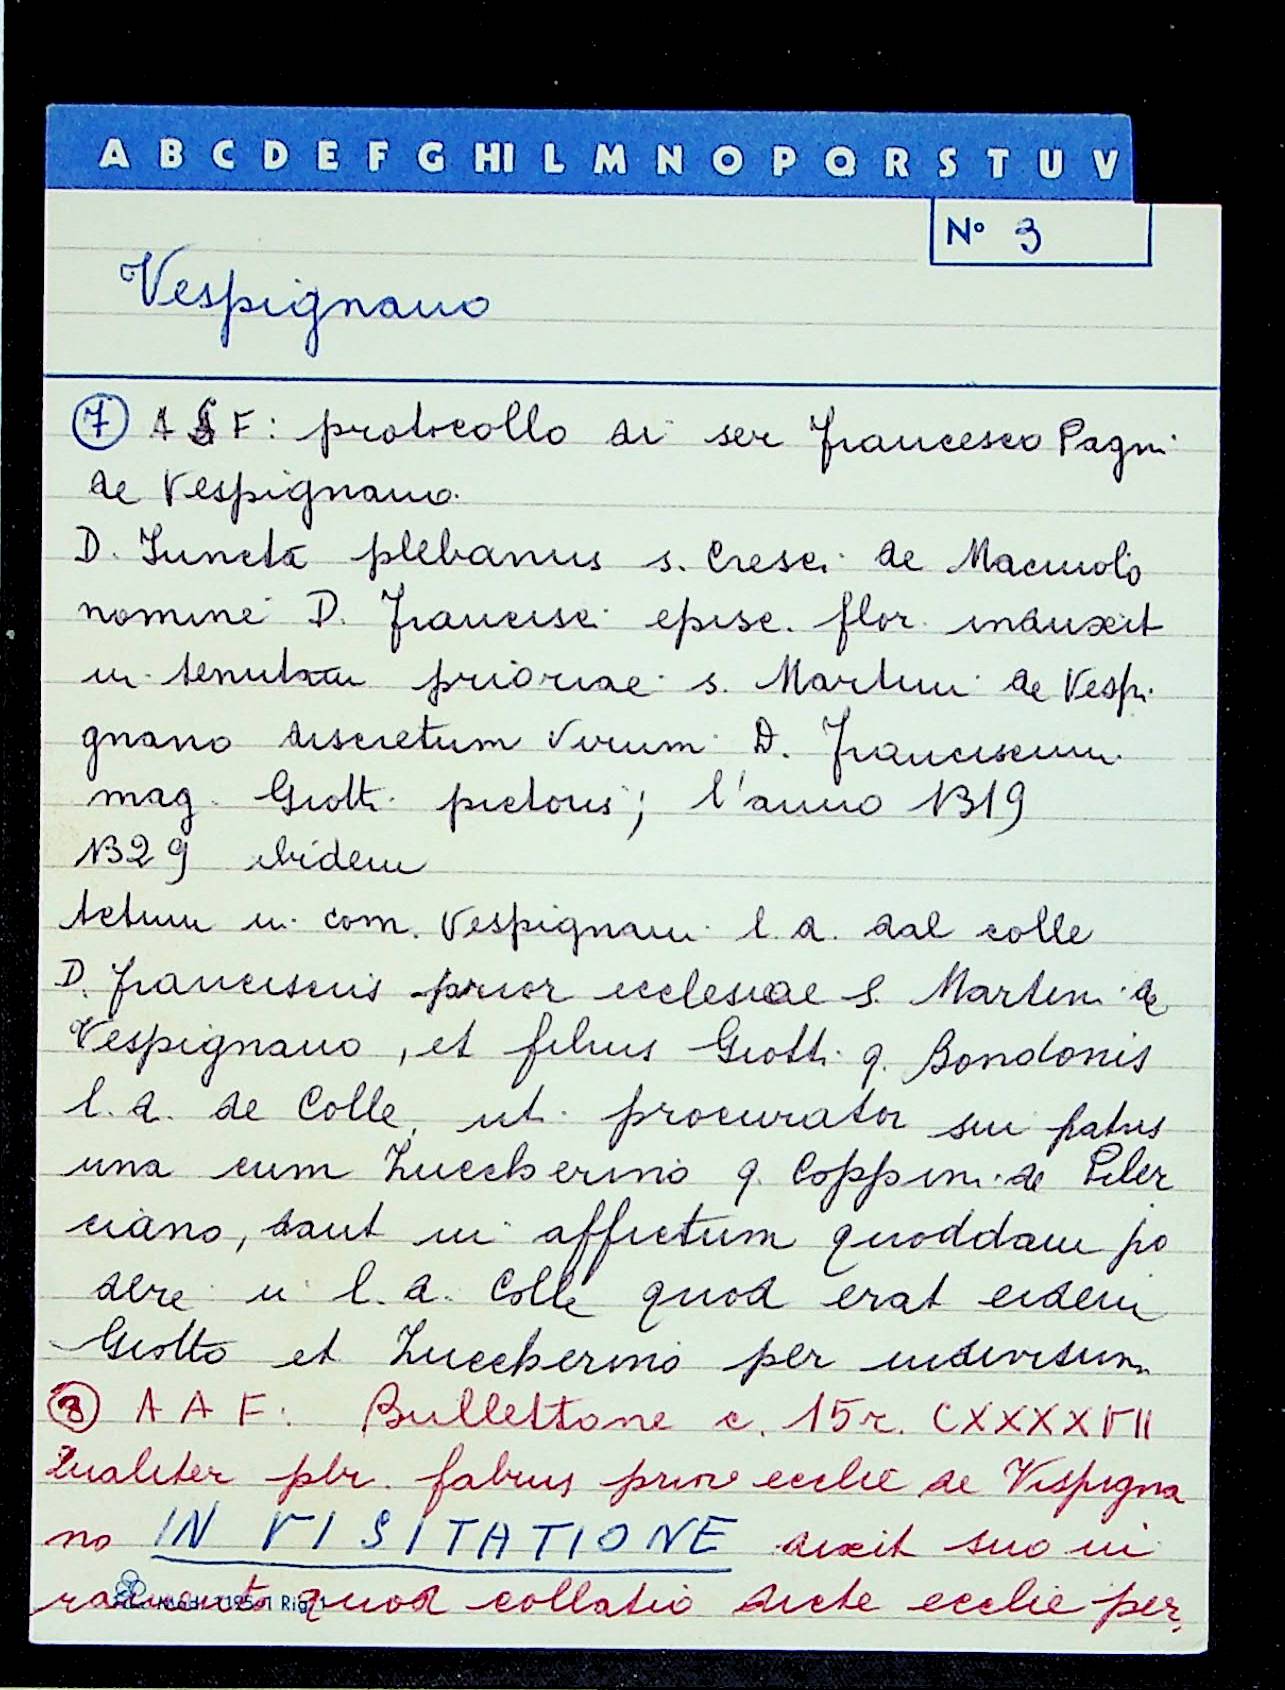 A B C D E F G HI L M N O P Q R S T U V
N° 3
Vespignano
7 A S F: protocollo di ser Francesco Pagni
de Vespignano.
D. Iuncta plebanus s. Cresci de Macuolo
nomine D. Francisci episc. flor. induxit
in tenutam prioriae s. Martini de Vespi
gnano discretum virum D. Franciscum
mag. Giotti pictoris; l'anno 1319
1329 ibidem
Actum in com. Vespignani l.d. dal colle
D. Franciscus prior ecclesiae S. Martini de
Vespignano, et filius Giotti q. Bondonis
l.d. de Colle, ut procurator sui patris
una cum Zuccherino q. Coppini de Piler
ciano, dant in affictum quoddam po
dere in l.d. Colle quod erat eidem
Giotto et Zuccherino per indivisum
8 A A F: Bullettone c. 15r. CXXXXVII
Qualiter pbr. fabrus prior ecclie de Vispigna
no IN VISITATIONE dixit suo iu
ramento quod collatio dicte ecclie per